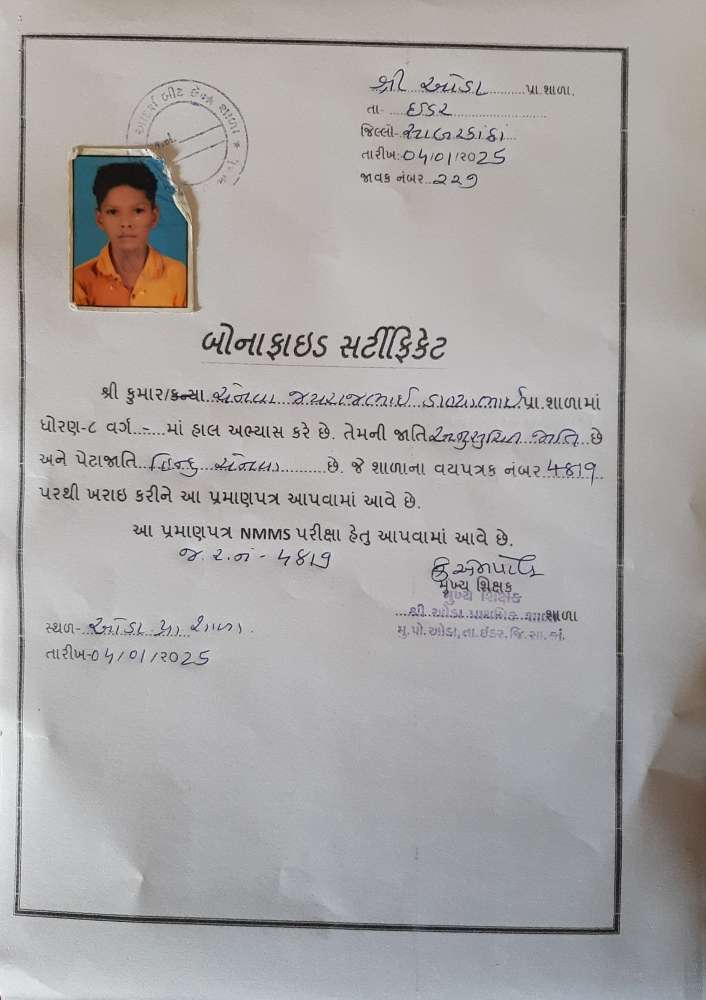 શ્રી ઓડા પ્રા.શાળા.
તા- ઈડર
જિલ્લો- સાબરકાંઠા
તારીખ:-04/01/2025
જાવક નંબર..૨૨૭
બોનાફાઇડ સર્ટીફિકેટ
શ્રી કુમાર/કન્યા સેનવા જયરાજભાઈ ડાહ્યાભાઈ પ્રા.શાળામાં
ધોરણ-૮ વર્ગ..-...માં હાલ અભ્યાસ કરે છે. તેમની જાતિ અનુસુચિત જાતિ છે
અને પેટાજાતિ હિન્દુ સેનવા છે. જે શાળાના વયપત્રક નંબર 4819
પરથી ખરાઇ કરીને આ પ્રમાણપત્ર આપવામાં આવે છે.
આ પ્રમાણપત્ર NMMS પરીક્ષા હેતુ આપવામાં આવે છે.
જ. ર. નં - 4819
મુખ્ય શિક્ષક
મુખ્ય શિક્ષક
શ્રી ઓડા પ્રાથમિક શાળા
મુ.પો.ઓડા,તા.ઇડર.જિ.સા.કાં.
સ્થળ- ઓડા પ્રા શાળા.
તારીખ-04/01/2025